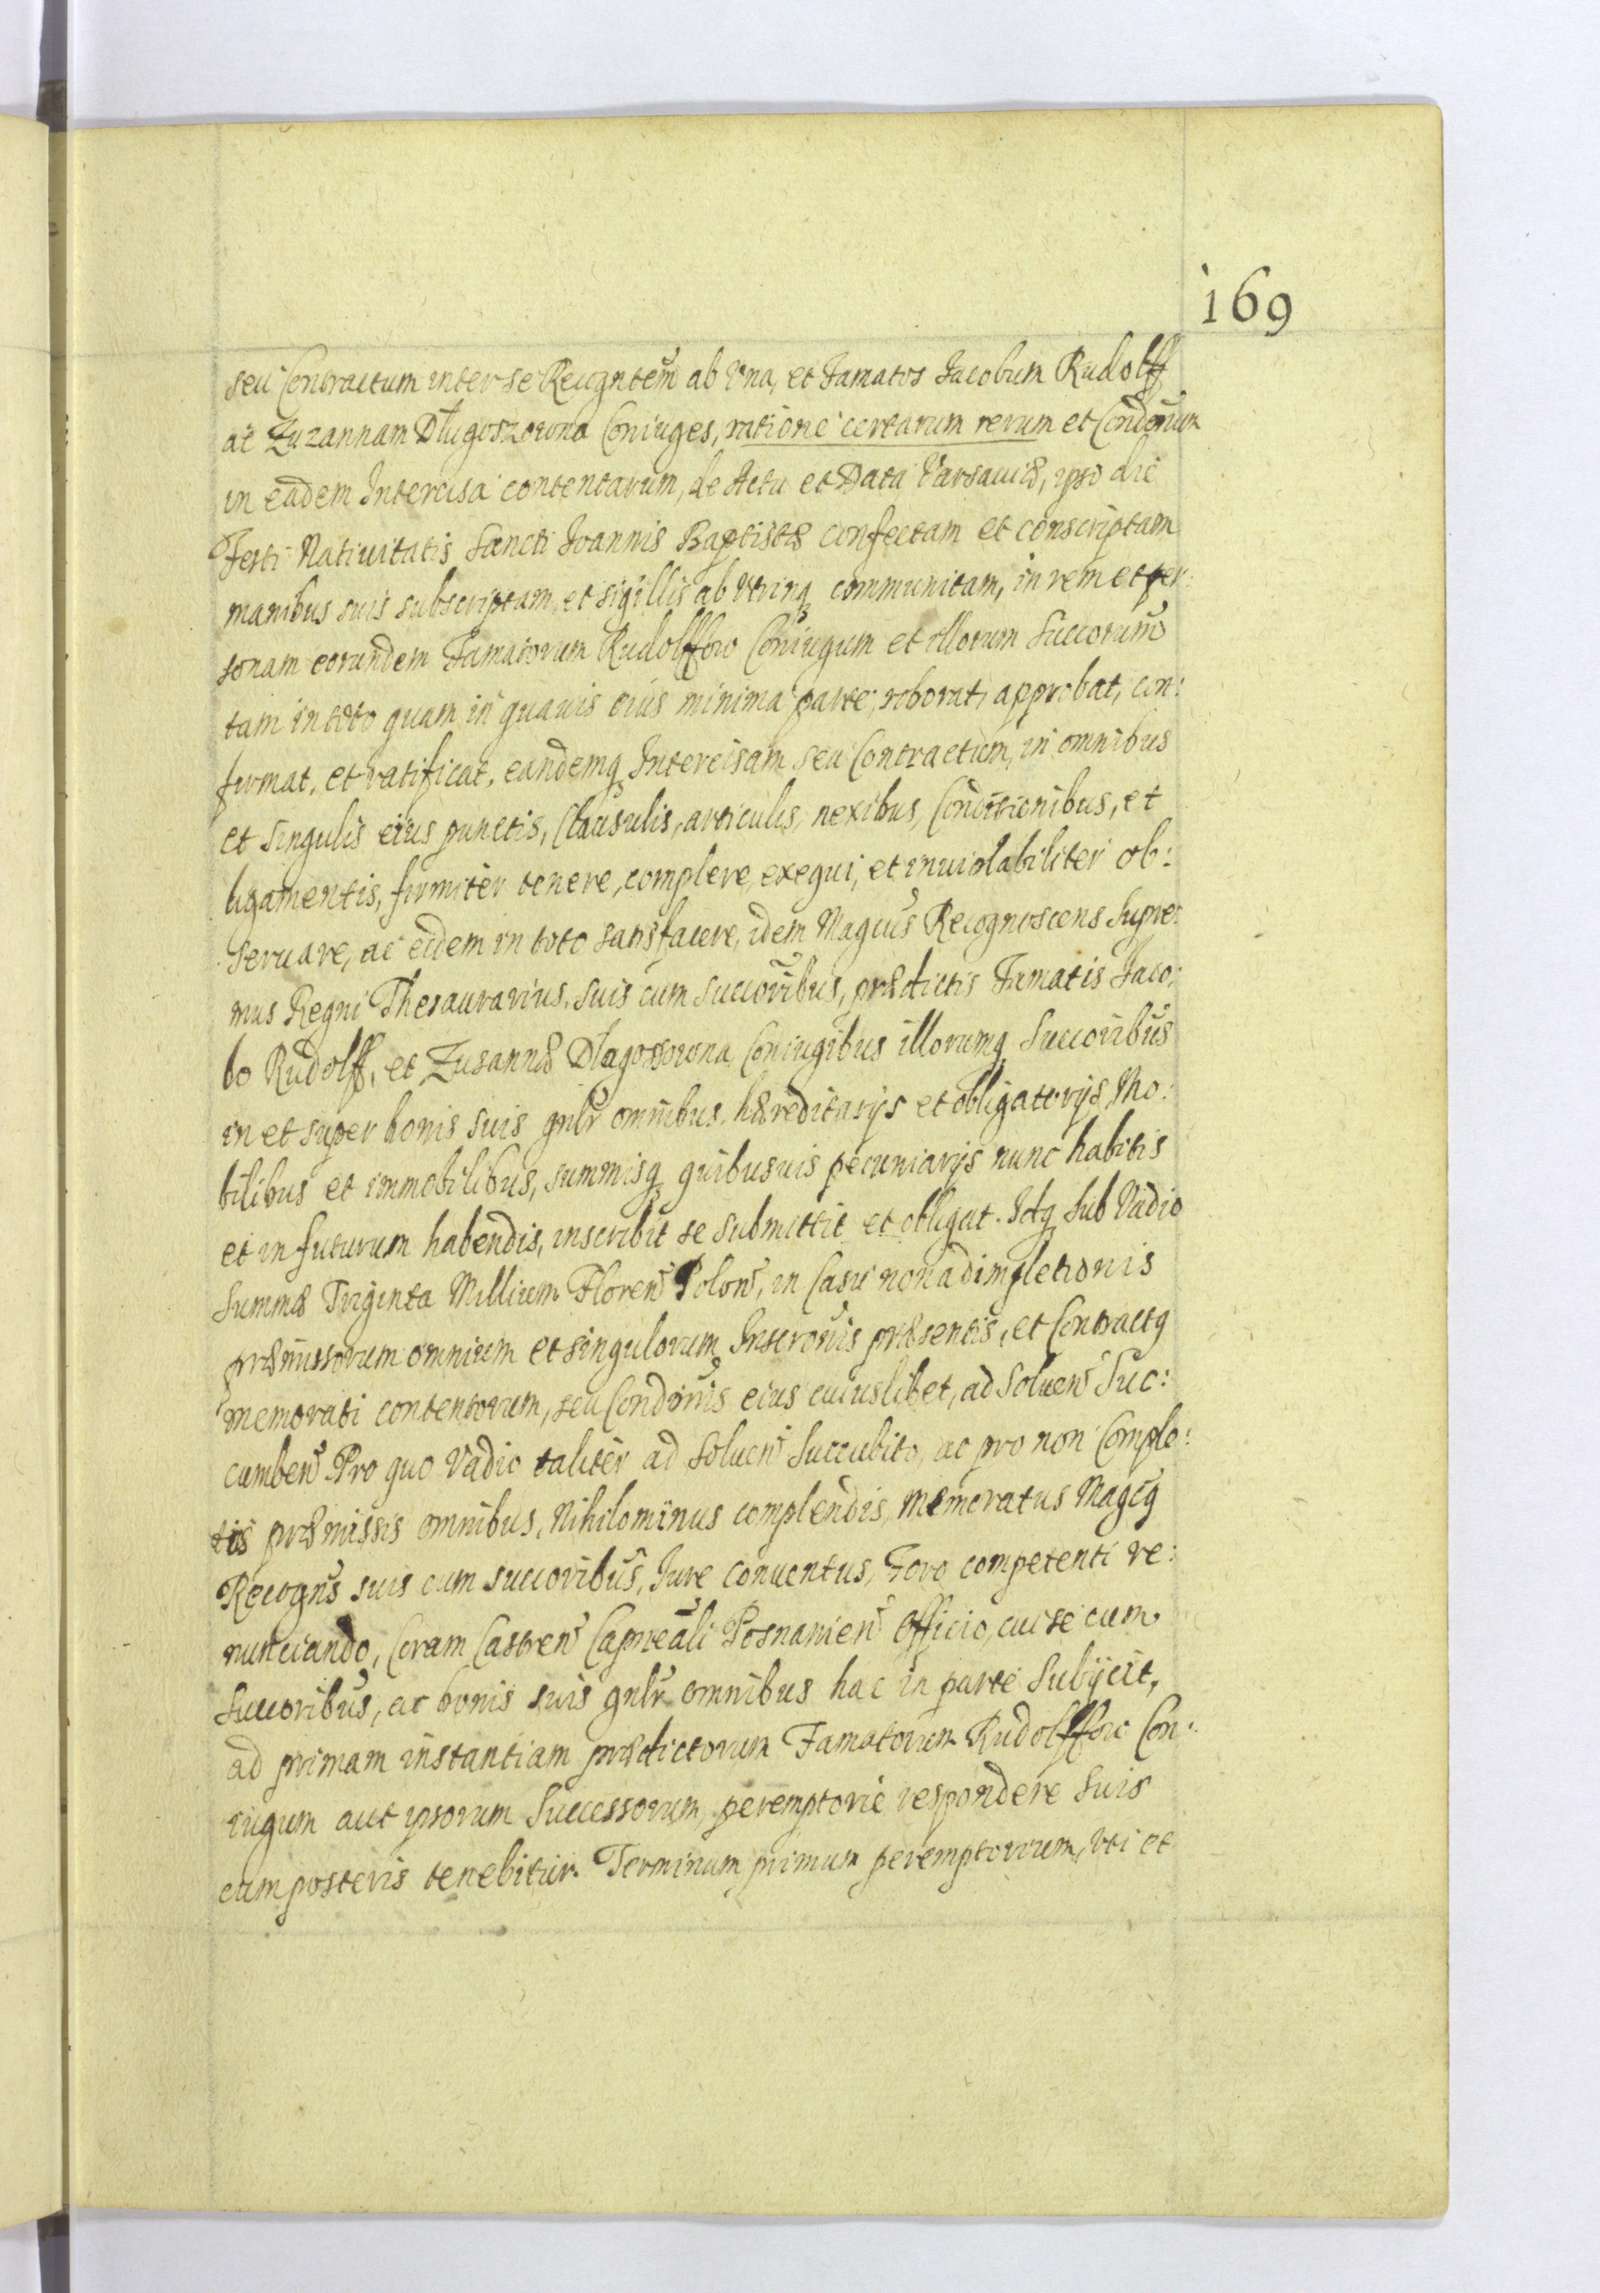 169
seu Contractum inter se Recogntem ab Vna, et Famatos Jacobum Rudolff
ac Zuzannam Długoszowna Coniuges, ratione certarum rerum et Condonum
in eadem Intercisa contentarum, de Actu et Data Varsauiæ, ipso die
Festi Natiuitatis Sancti Joannis Baptistæ confectam et conscriptam
manibus suis subscriptam, et sigillis ab Vtrinq communitam, in rem et per:
sonam eorundem Famatorum Rudolffow Coniugum et illorum Succorum
tam in toto quam in quauis eius minima parte, roborat, approbat, con:
firmat, et ratificat, eandemq Intercisam seu Contractum, in omnibus
et singulis eius punctis, Clausulis, articulis, nexibus, Conditionibus, et
ligamentis, firmiter tenere, complere, exequi, et inuiolabiliter ob:
seruare, ac eidem in toto satisfacere, idem Magcus Recognoscens Supre:
mus Regni Thesaurarius, suis cum succoribus, prædictis Famatis Jaco:
bo Rudolff, et Zusannæ Dlugossowna Coniugibus illorumq Succoribus
in et super bonis suis gnlr omnibus, hæreditarijs et obligatorijs Mo:
bilibus et immobilibus, summisq quibusuis pecuniarijs nunc habitis
et in futurum habendis, inscribit se submittit et obligat. Idq sub Vadio
Summæ Triginta Millium Floren Polon, in Casu non adimpletionis
præmissorum omnium et singulorum Inscronis præsentis, et Contractq
memorati contentorum, seu Condonis eius cuiuslibet, ad soluen Suc:
cumben Pro quo Vadio taliter ad soluen Succubito, ac pro non Comple:
tis præmissis omnibus, Nihilominus complendis, Memoratus Magcq
Recogns suis cum succoribus, Jure conuentus, Foro competenti re:
nunciando, Coram Castren Capneali Posnanien Officio, cui se cum
Succoribus, ac bonis suis gnlr omnibus hac in parte Subijcit,
ad primam instantiam prædictorum Famatorum Rudolffow Con:
iugum aut ipsorum Successorum, peremptorie respondere suis
cum posteris tenebitur. Terminum primum peremptorium, Vti et